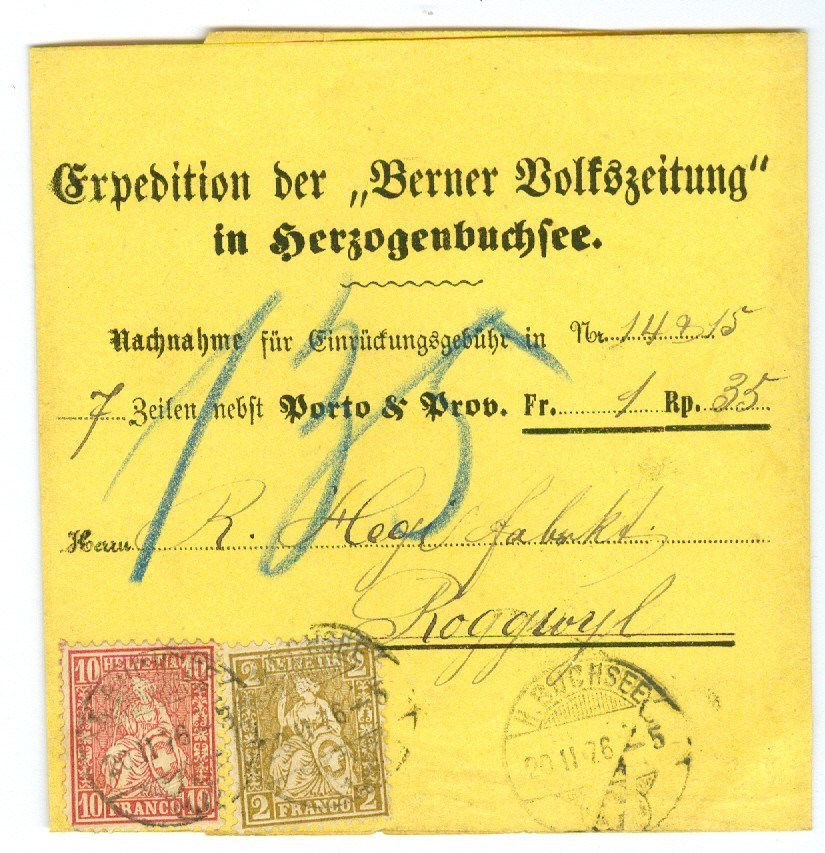 Expedition der „Berner Volkszeitung“
in Herzogenbuchsee.
Nachnahme für Einrückungsgebühr in Nr. 14 & 15
7 Zeilen nebst Porto & Prov. Fr. 1 Rp. 35
135
Herrn R. Hegi fabrkt.
Roggwyl
10 HELVETIA 10
10 FRANCO 10
2 HELVETIA 2
2 FRANCO 2
H. BUCHSEE
20 II 76 5